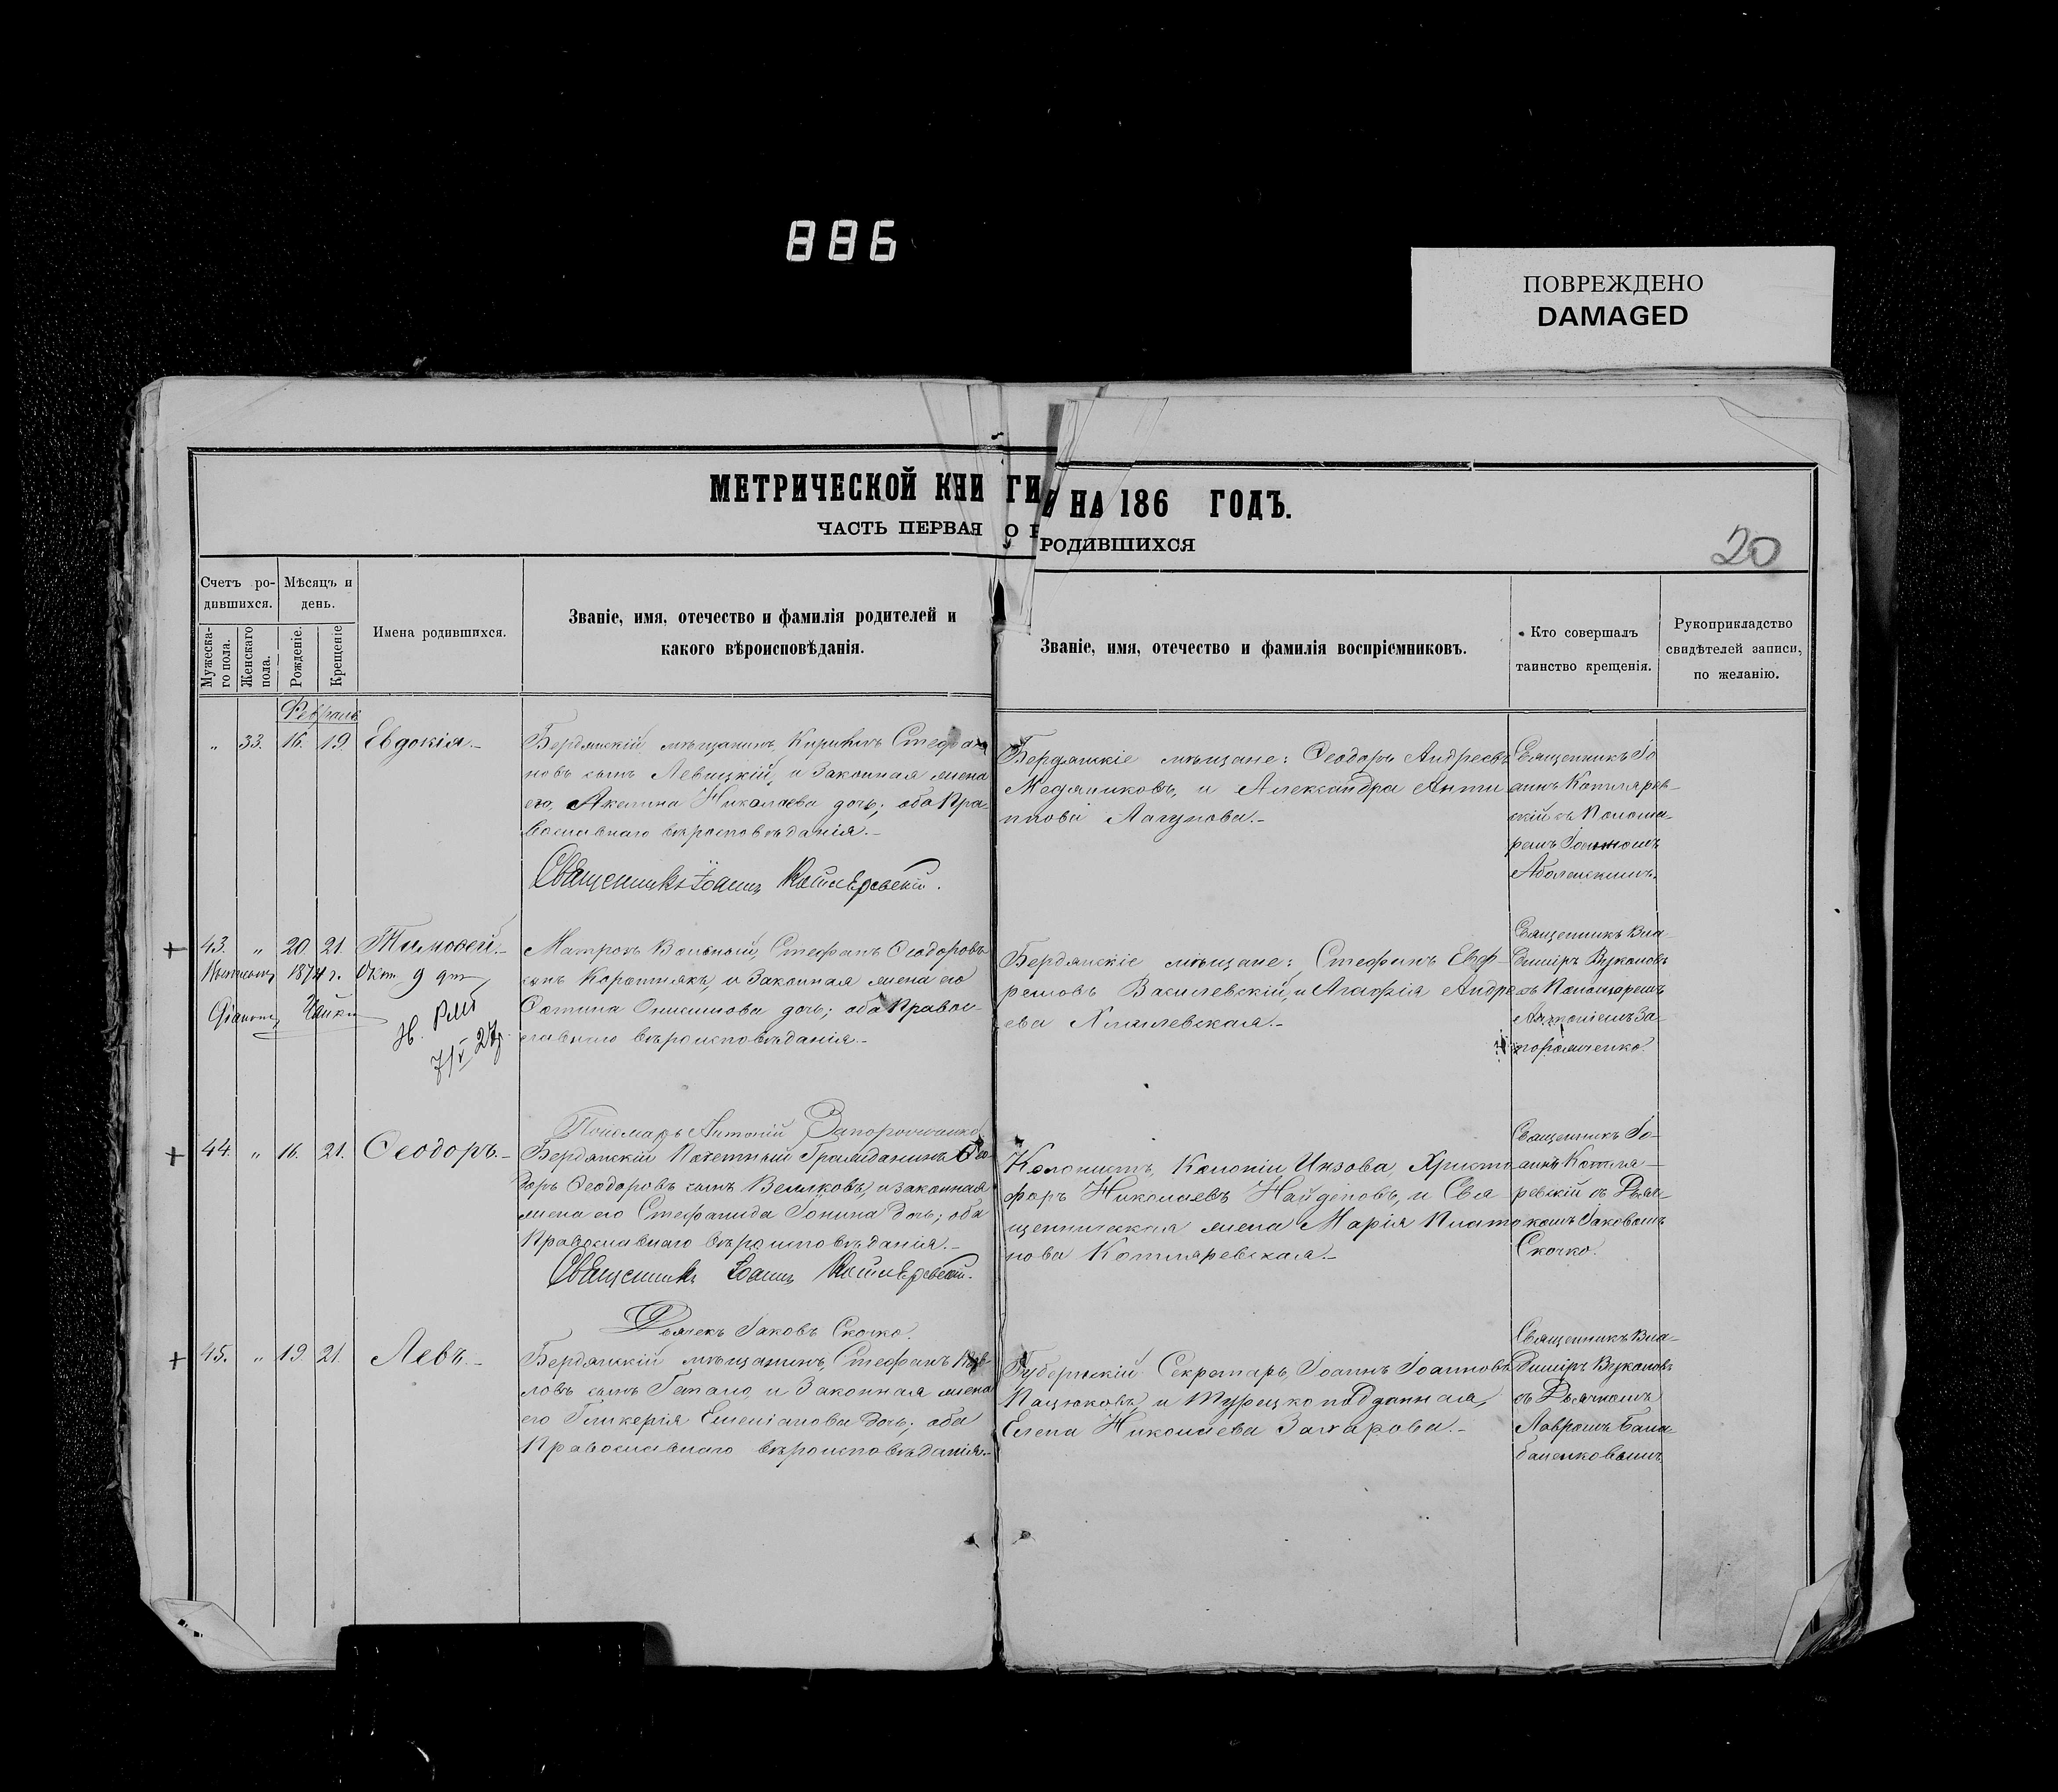 886
ПОВРЕЖДЕНО
DAMAGED
МЕТРИЧЕСКОЙ КНИГИ НА 186 ГОДЪ.
ЧАСТЬ ПЕРВАЯ О РОДИВШИХСЯ
20
Счетъ ро-
дившихся.
Мѣсяцъ и
день.
Мужеска-
го пола.
Женскаго
пола.
Рожденіе.
Крещеніе
Имена родившихся.
Званіе, имя, отечество и фамилія родителей и
какого вѣроисповѣданія.
Званіе, имя, отечество и фамилія воспріемниковъ.
Кто совершалъ
таинство крещенія.
Рукоприкладство
свидѣтелей записи,
по желанію.
Февраль
„ 33. 16. 19. Евдокія.-
Бердянскій мѣщанинъ, Кириллъ Стефа-
новъ сынъ Левицкій, и Законная жена
его, Акелина Николаева дочь; оба Пра-
вославнаго вѣроисповѣданія.-
Священникъ Іоаннъ Котляревскій.
Бердянскіе мѣщане: Ѳеодоръ Андреевъ
Медяниковъ, и Александра Анти-
пова Лагунова.-
Священникъ Іо
аннъ Котлярев-
скій съ Понома-
ремъ Іоанномъ
Аболенскимъ.
+ 43. „ 20. 21. Тимоѳей.-
1874 г. Окт 9 дня
Матрозъ Вольный, Стефанъ Ѳеодоровъ
сынъ Коротнякъ, и Законная жена его
Фотина Онисимова дочь; оба Правос-
лавнаго вѣроисповѣданія.-
Бердянскіе мѣщане: Стефанъ Евф-
ремовъ Василевскій, и Агафія Андре-
ева Хмилевская.-
Священникъ Вла-
диміръ Вуколовъ
съ Пономаремъ
Антоніемъ За-
порожченко.
Пономарь Антоній Запорожченко
+ 44. „ 16. 21. Ѳеодоръ.-
Бердянскій Почетный Гражданинъ Ѳео-
доръ Ѳеодоровъ сынъ Вемяковъ, и законная
жена его Стефанида Іонина дочь; оба
Православнаго вѣроисповѣданія.-
Священникъ Іоаннъ Котляревскій.
Колонистъ, Колоніи Инзова, Христо
форъ Николаевъ Найденовъ, и Свя-
щенническая жена Марія Плато
нова Котляревская.-
Священникъ Іо-
аннъ Котля-
ревскій съ Дьяч-
комъ Іаковомъ
Скочко.
Дьячекъ Іаковъ Скочко.
+ 45. „ 19. 21. Левъ.-
Бердянскій мѣщанинъ, Стефанъ Пав-
ловъ сынъ Гапало, и Законная жена
его Гликерія Емеліанова дочь; оба
Православнаго вѣроисповѣданія.-
Губернскій Секретарь, Іоаннъ Іоанновъ
Пацюковъ, и Турецкоподданная,
Елена Николаева Захарова.-
Священникъ Вла-
диміръ Вуколовъ
съ Дьячкомъ
Лавромъ Бала-
баненковымъ